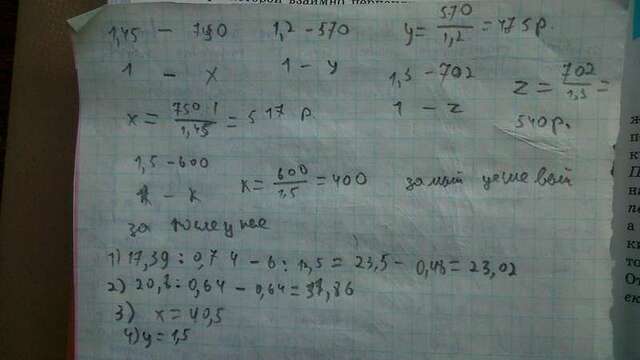 1,45 - 750 1,2 - 570 y = 570/1,2 = 475 р.
1 - x 1 - y 1,3 - 702 z = 702/1,3 =
x = 750·1/1,45 = 517 р 1 - z 540 р.
1,5 - 600
1 - к к = 600/1,5 = 400 самый дешевый
за последнее
1) 17,39 : 0,74 - 6 : 12,5 = 23,5 - 0,48 = 23,02
2) 20,8 : 0,64 - 0,64 = 31,86
3) x = 40,5
4) y = 1,5